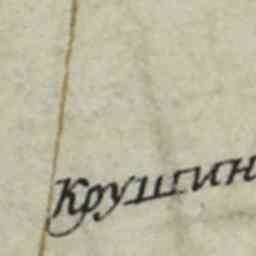 Крушин